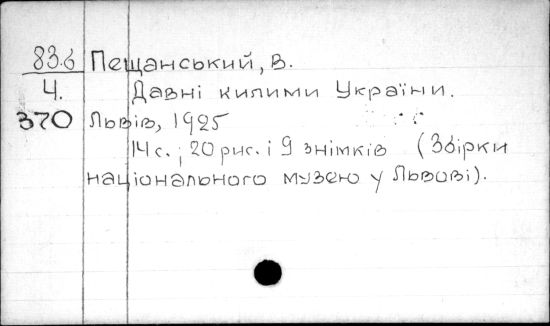 83.6 Пещанський, В.
4. Давні килими України.
370 Львів, 1925
14 с.; 20 рис. і 9 знімків (Збірки
національного музею у Львові).